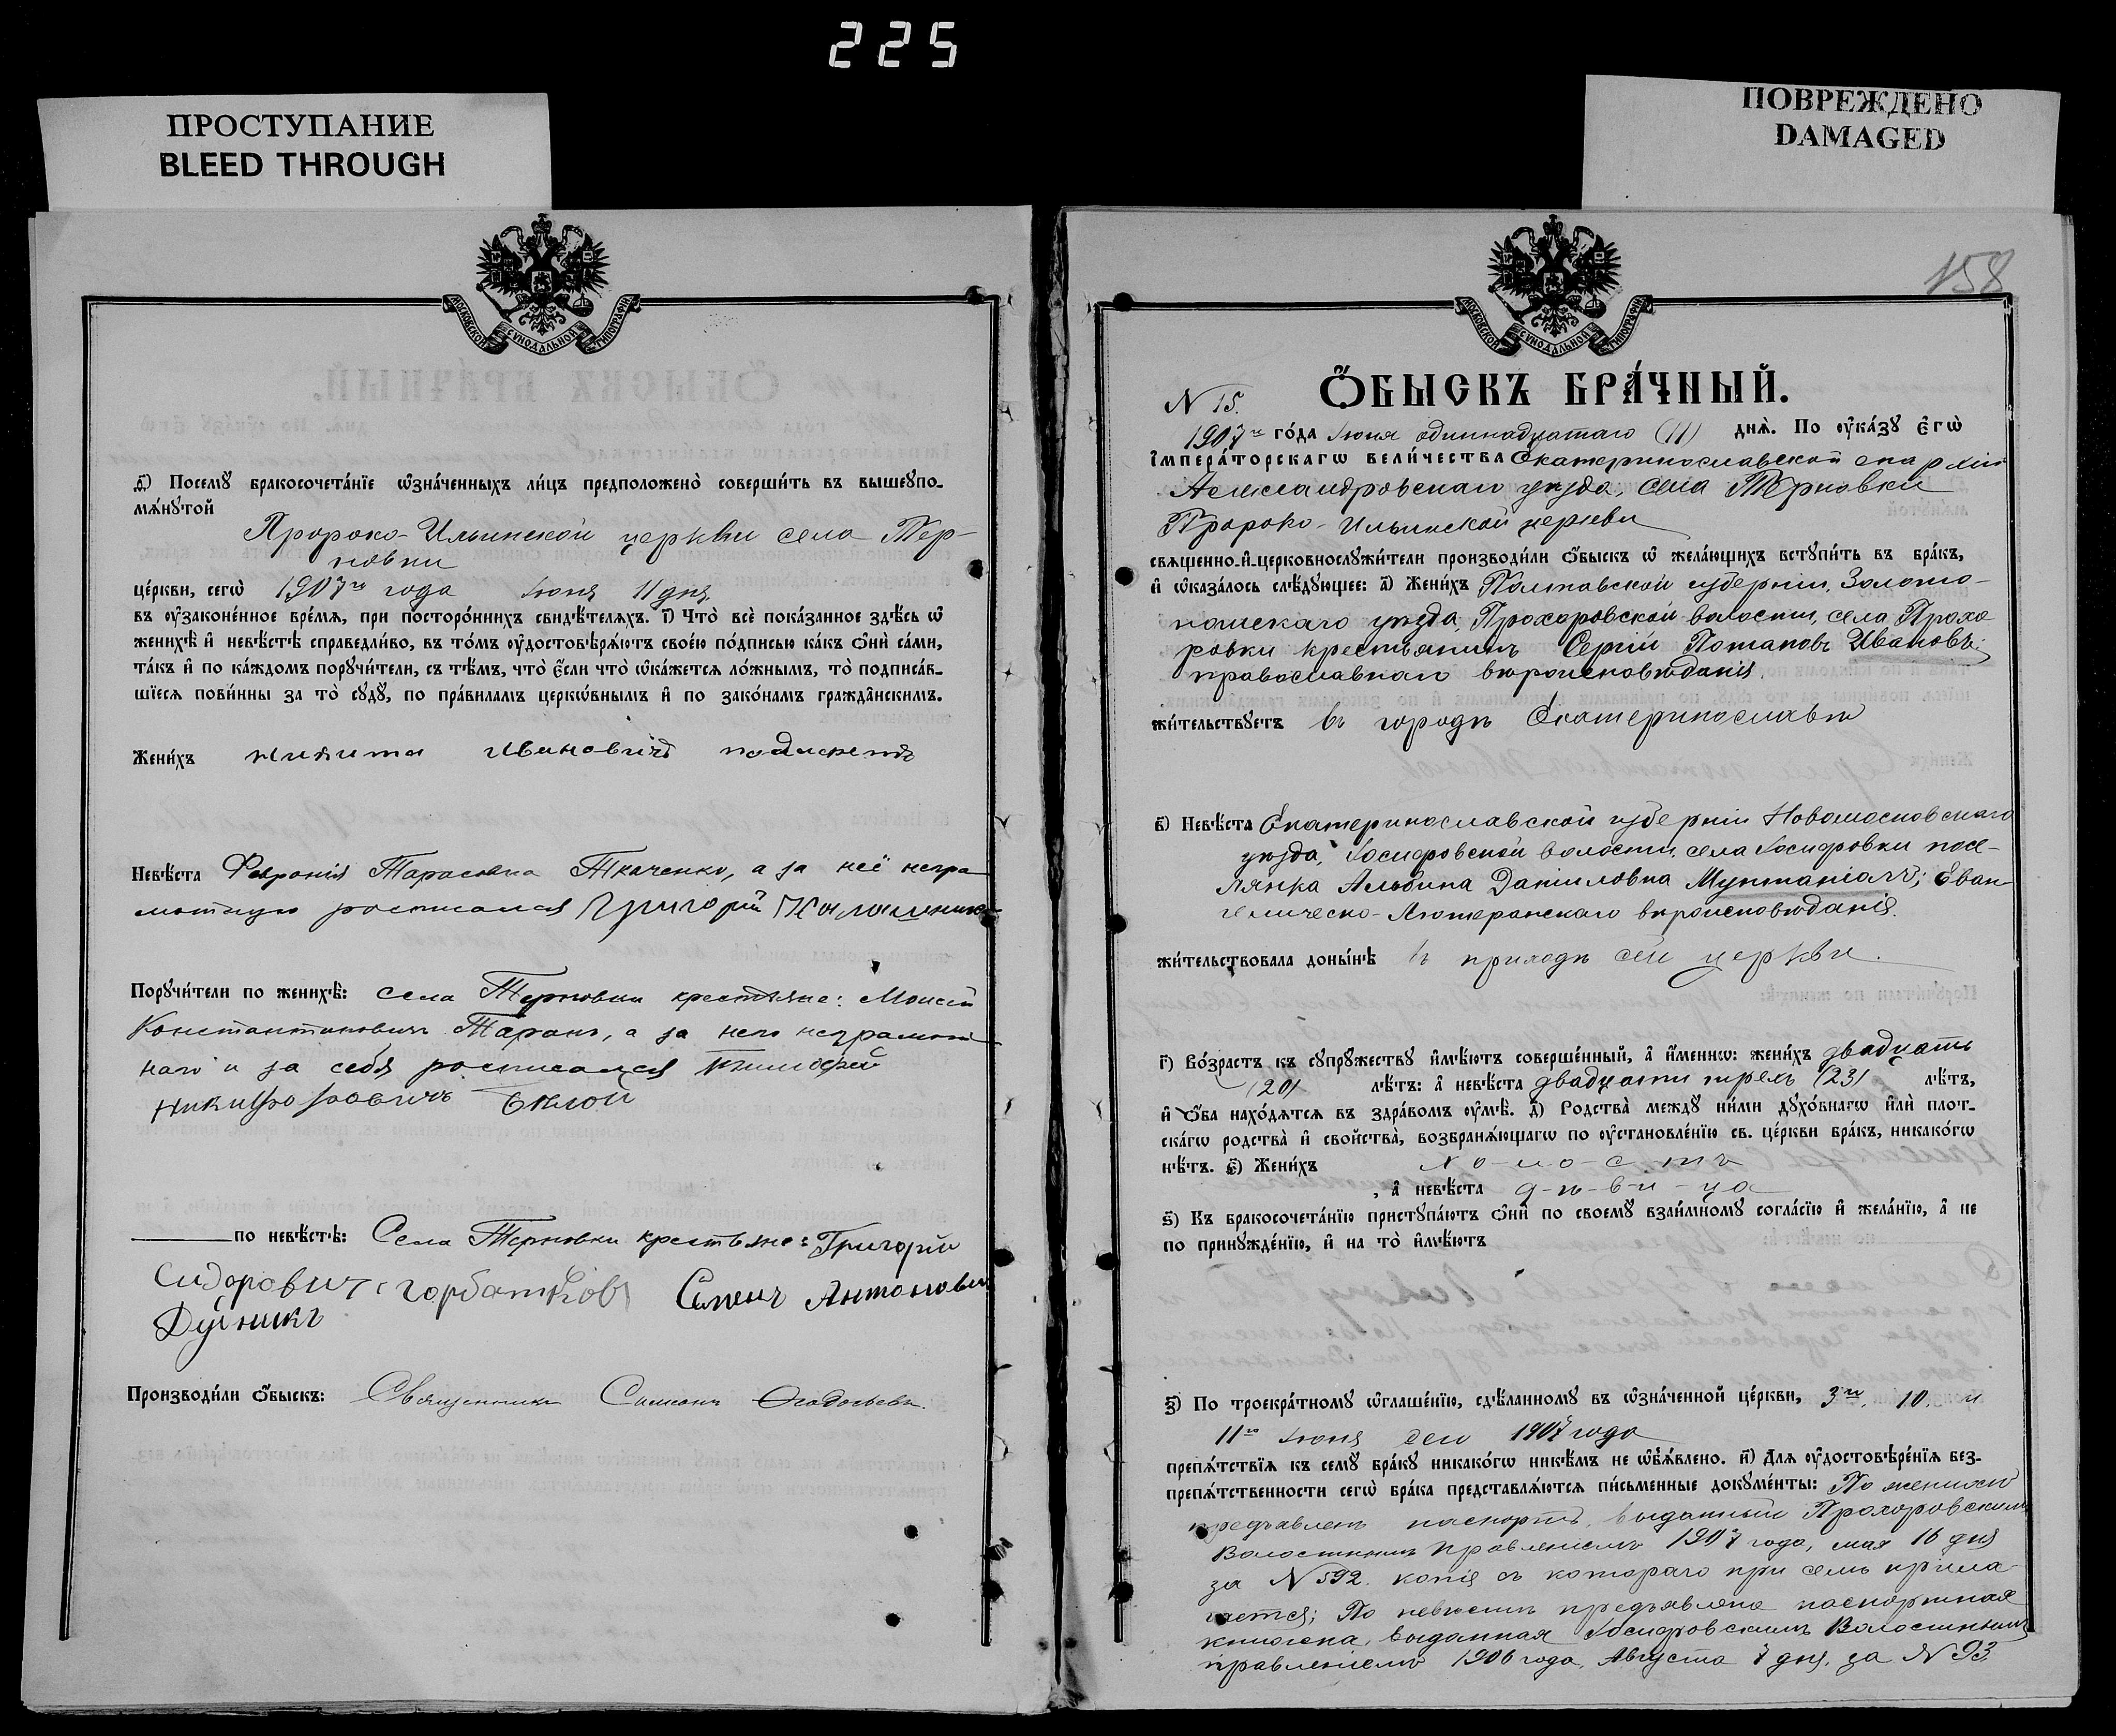 225
ПРОСТУПАНИЕ
BLEED THROUGH
ПОВРЕЖДЕНО
DAMAGED
МОСКОВСКОЙ СѴНОДАЛЬНОЙ ТИПОГРАФІИ
д҃) Посемꙋ̀ бракосочета́нїе ѡ҆зна́ченныхъ ли́цъ предположено̀ соверши́ть въ вышеꙋпо-
мѧ́нꙋтой
Пророко-Ильинской церкви села Тер-
новки
це́ркви, сегѡ̀ 1907го года Іюня 11 дня,
въ ᲂу҆законе́нное вре́мѧ, при посторо́ннихъ свидѣ́телѧхъ. і҃) Что̀ всѐ пока́занное здѣ́сь ѡ҆
женихѣ̀ и҆ невѣ́стѣ справедли́во, въ то́мъ ᲂу҆достовѣрѧ́ютъ свое́ю по́дписью ка́къ ѻ҆нѝ са́ми,
та́къ и҆ по ка́ждомъ порꙋчи́тели, съ тѣ́мъ, что̀ є҆́сли что̀ ѡ҆ка́жетсѧ ло́жнымъ, то̀ подписа́в-
шїесѧ пови́нны за то̀ сꙋдꙋ̀, по пра́виламъ церкѡ́внымъ и҆ по зако́намъ гражда́нскимъ.
Жени́хъ Никита Ивановичъ
Невѣ́ста Февронія Тарасовна Ткаченко, а за неё негра
мотную росписался Григорій Калашник
Порꙋчи́тели по женихѣ̀: села Терновки крестьяне: Моисей
Константиновичъ Таранъ, а за него неграмот
наго и за себя росписался Тимофей
Никифоровичъ Бѣлой
по невѣ́стѣ: Села Терновки крестьяне: Григорій
Сидоровичъ Горбатковъ Семенъ Антонович
Дуйникъ
Производи́ли ѻ҆́быскъ: Священникъ Симеонъ Ѳеодосьевъ.
158
МОСКОВСКОЙ СѴНОДАЛЬНОЙ ТИПОГРАФІИ
N 15.
Ѻ҆́БЫСКЪ БРА́ЧНЫЙ.
1907го го́да Іюня одиннадцатаго (11) днѧ̀. По ᲂу҆ка́зꙋ є҆гѡ̀
і҆мпера́торскагѡ вели́чества Екатеринославской епархіи
Александровскаго уѣзда, села Терновки
Пророко-Ильинской церкви
свѧще́нно-и҆-церковнослꙋжи́тели производи́ли ѻ҆́быскъ ѡ҆ жела́ющихъ встꙋпи́ть въ бра́къ,
и҆ ѡ҆каза́лось слѣ́дꙋющее: а҃) Жени́хъ Полтавской губерніи, Золото-
ношскаго уѣзда, Прохоровской волости, села Прохо
ровки крестьянинъ Сергій Потаповъ Ивановъ;
православнаго вѣроисповѣданія.
жи́тельствꙋетъ въ городѣ Екатеринославѣ
в҃) Невѣ́ста Екатеринославской губерніи Новомосковскаго
уѣзда, Іосифовской волости, села Іосифовки посе-
лянка Альбина Даніиловна Мунтаніолъ; Еван-
гелическо-Лютеранскаго вѣроисповѣданія.
жи́тельствовала доны́нѣ въ приходѣ сей церкви.
г҃) Во́зрастъ къ сꙋпрꙋ́жествꙋ и҆мѣ́ютъ соверше́нный, а҆ и҆́меннѡ: жени́хъ двадцать
(20) лѣ́тъ: а҆ невѣ́ста двадцати трехъ (23) лѣ́тъ,
и҆ ѻ҆́ба нахо́дѧтсѧ въ здра́вомъ ᲂу҆мѣ̀. д҃) Родства̀ междꙋ̀ ни́ми дꙋхо́внагѡ и҆лѝ плот-
ска́гѡ родства̀ и҆ свойства̀, возбранѧ́ющагѡ по ᲂу҆становле́нїю св. це́ркви бра́къ, никако́гѡ
нѣ́тъ. є҃) Жени́хъ х-о-л-о-с-тъ
, а҆ невѣ́ста д-ѣ-в-и-ца
ѕ҃) Къ бракосочета́нїю пристꙋпа́ютъ ѻ҆нѝ по своемꙋ̀ взаи́мномꙋ согла́сїю и҆ жела́нїю, а҆ не
по принꙋжде́нїю, и҆ на то̀ и҆мѣ́ютъ
з҃) По троекра́тномꙋ ѡ҆глаше́нїю, сдѣ́ланномꙋ въ ѡ҆зна́ченной це́ркви, 3го, 10, и
11го Іюня сего 1907 года
препѧ́тствїѧ къ семꙋ̀ бра́кꙋ никако́гѡ никѣ́мъ не ѡ҆б̾ѧ́влено. и҃) Длѧ ᲂу҆достовѣре́нїѧ без-
препѧ́тственности сегѡ̀ бра́ка представлѧ́ютсѧ пи́сьменные докꙋме́нты: По женихѣ
предъявленъ паспортъ, выданный Прохоровскимъ
Волостнымъ Правленіемъ 1907 года, мая 16 дня
за N 592. копія съ котораго при семъ прила-
гается; По невѣстѣ предъявлена паспортная
книжка, выданная Іосифовскимъ Волостнымъ
правленіемъ 1906 года, Августа 7 дня, за N 93